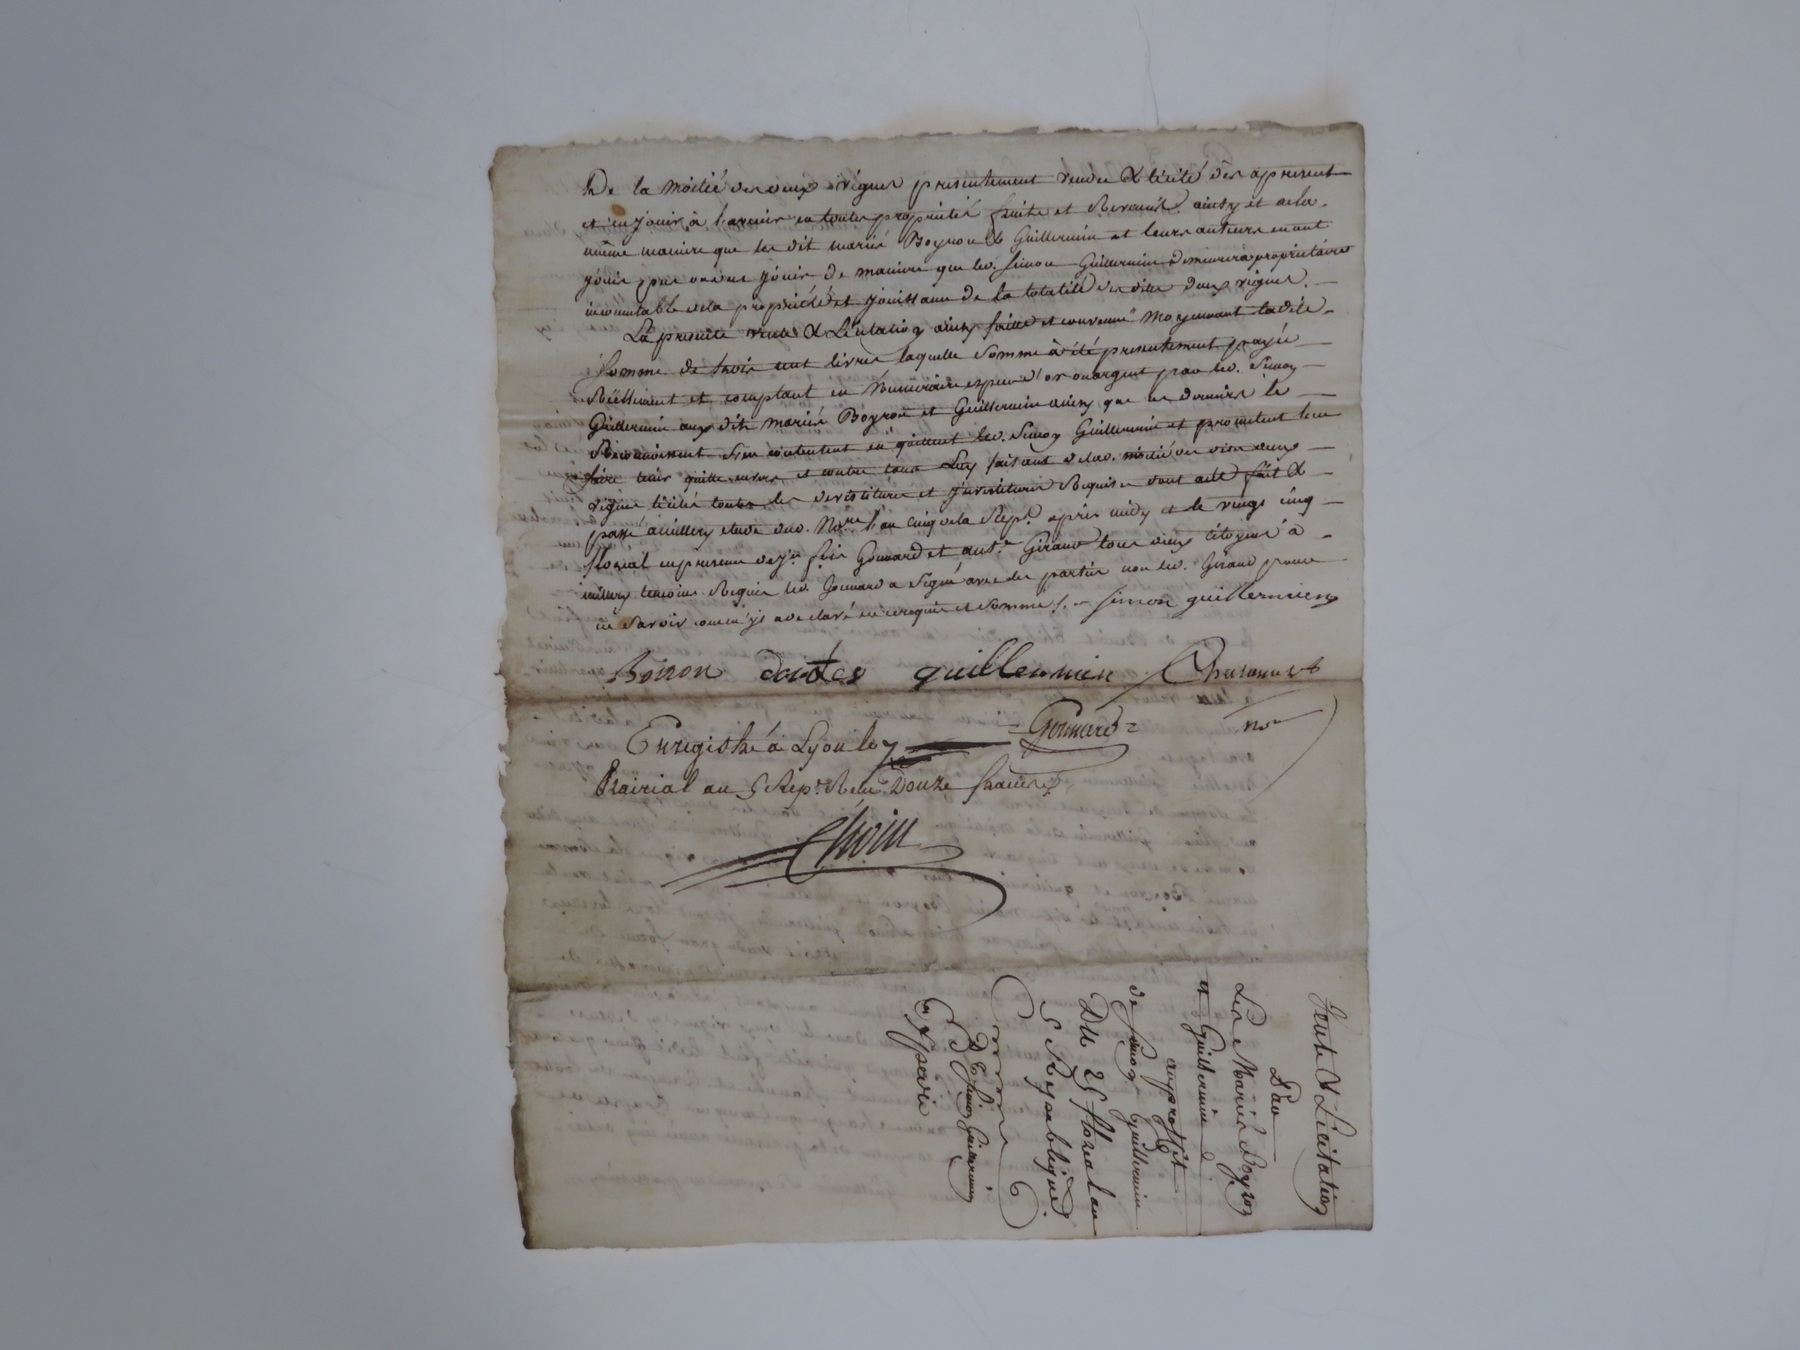 De la moitié des deux vignes presentement vendue & licité dès apresent
et en jouir à l'avenir en toutes propriété fruits et Revenus. ainsy et de la
même maniere que les dit mariés Boyron & Guillermin et leurs auteurs en ont
jouis pu ou du jouir de maniere que led. Simon Guillermin demeurera proprietaire
incomutable de la propriété et jouissance de la totalité des dites deux vignes.
La presente vente & Licitation ainsy faitte et convenue moyennant ladite
somme de trois cent livres laquelle somme à été presentement payée
Réellement et comptant en Numeraire espece d'or ou argent par led. Simon
Guillermin aux dits mariés Boyron et Guillermin ainsy que ces derniers le
Reconnoissent s'en contentent en quittent led. Simon Guillermin et promettent l'en
faire tenir quitte envers et contre tous Luy faisant de lad. moitié des dites deux
vignes licités toutes les devestitures et jnvestitures Requises dont acte fait &
passé a millery etude dud. Nore. l'an cinq de la Rep.e après midy et le vingt cinq
floréal en presence de jn. fois Gonnard et ant.e Giraud tous deux citoyens à
millery temoins Requis led. Gonnard a signé avec les parties non led. Giraud pour
ne savoir comm'ils a declaré de ce requis et sommé /. simon guillermien
Boiron dantes guillermien Chasana
= Gonnard = nre
Enregistré à Lyon le 7
Prairial an 5 Rep.e Reçu Douze francs
Choin
Vente & Licitation
Par
Les Mariés Boyron
et Guillermin
au proffit
de Simon Guillermin
Du 25 floreal an
5 Republique
Pr Simon Guillermin
Expedie